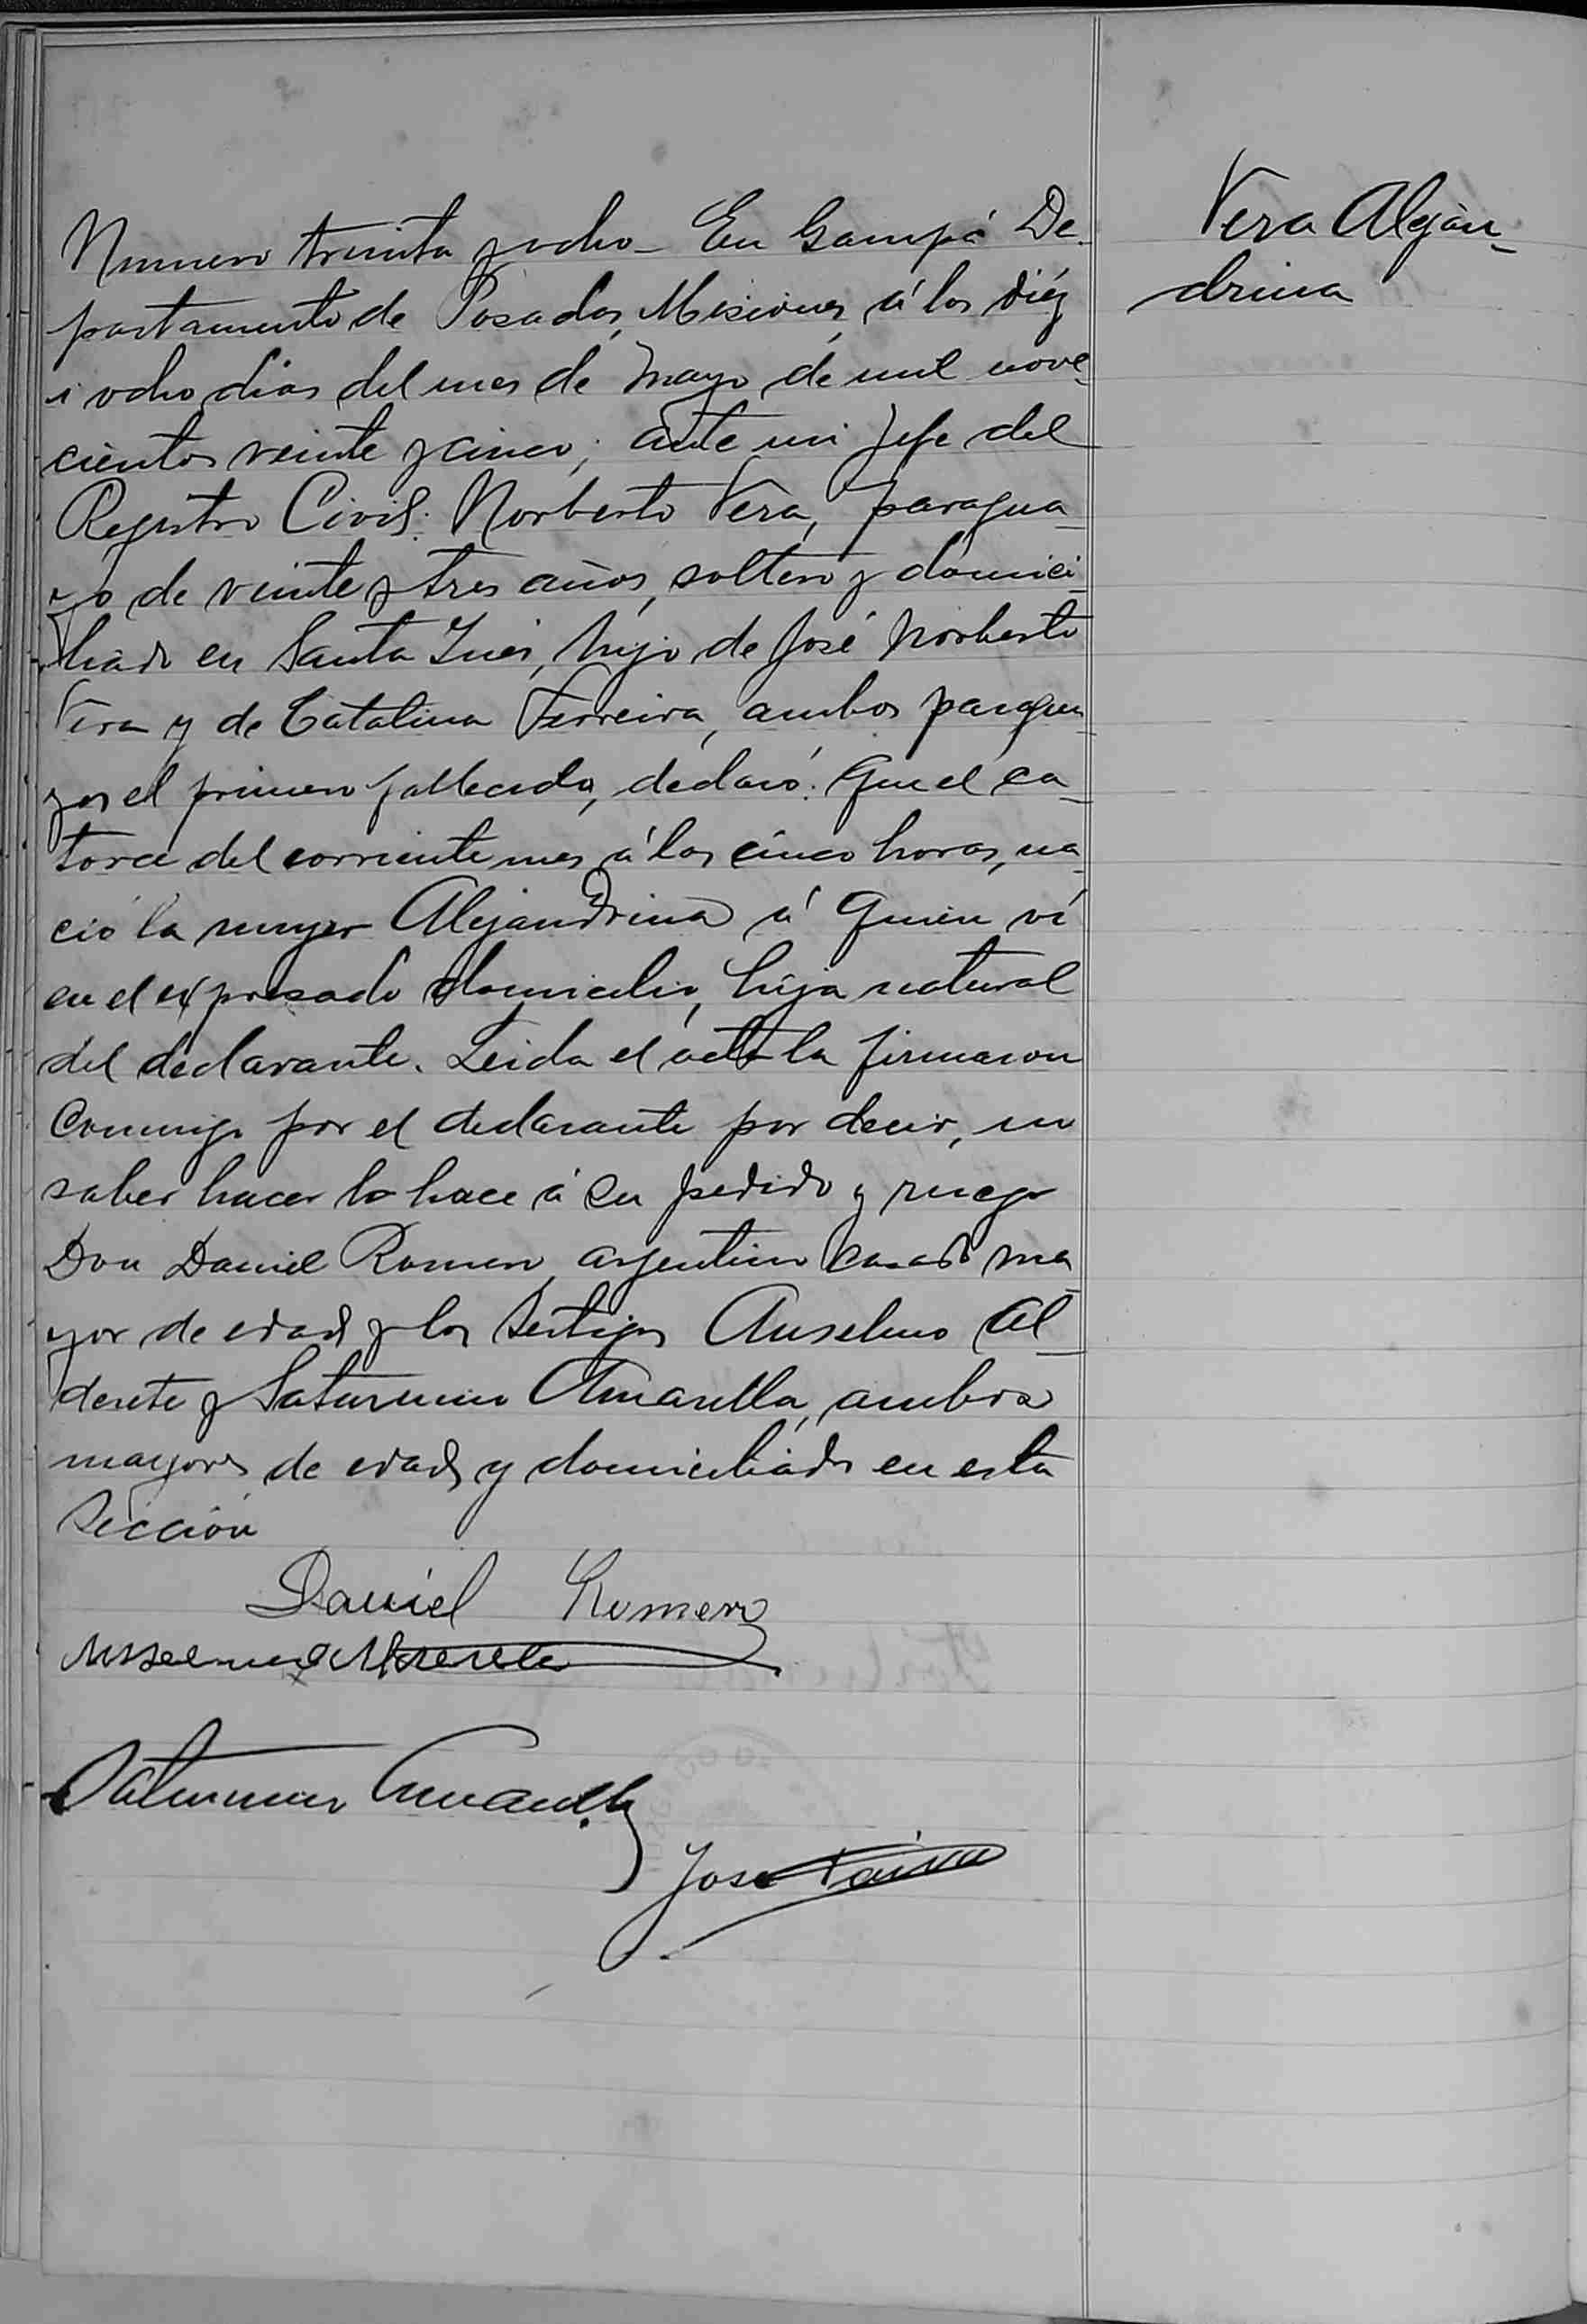 Vera Alejan-
drina
Numero treinta y ocho - En Garupá De-
partamento de Posadas, Misiones, á los diéz
i ocho dias del mes de Mayo de mil nove-
cientos veinte y cinco; ante mi Jefe del
Registro Civil: Norberto Vera, paragua-
yo de veinte y tres años, soltero y domici-
liado en Santa Inés, hijo de José Norberto
Vera y de Catalina Ferreira, ambos paragua-
yos el primero fallecido, declaró: Que el ca-
torce del corriente mes á las cinco horas, na-
ció la mujer Alejandrina á quien ví
en el expresado domicilio, hija natural
del declarante. Leida el acta la firmaron
conmigo por el declarante por decir, no
saber hacer lo hace á su pedido y ruego
Don Daniel Romero argentino casado ma-
yor de edad y los testigos Anselmo Al-
derete y Saturnino Amarilla, ambos
mayores de edad y domiciliados en esta
Sección
Daniel Romero
Anselmo Alderete
Saturnino Amarilla
Jose Paiva